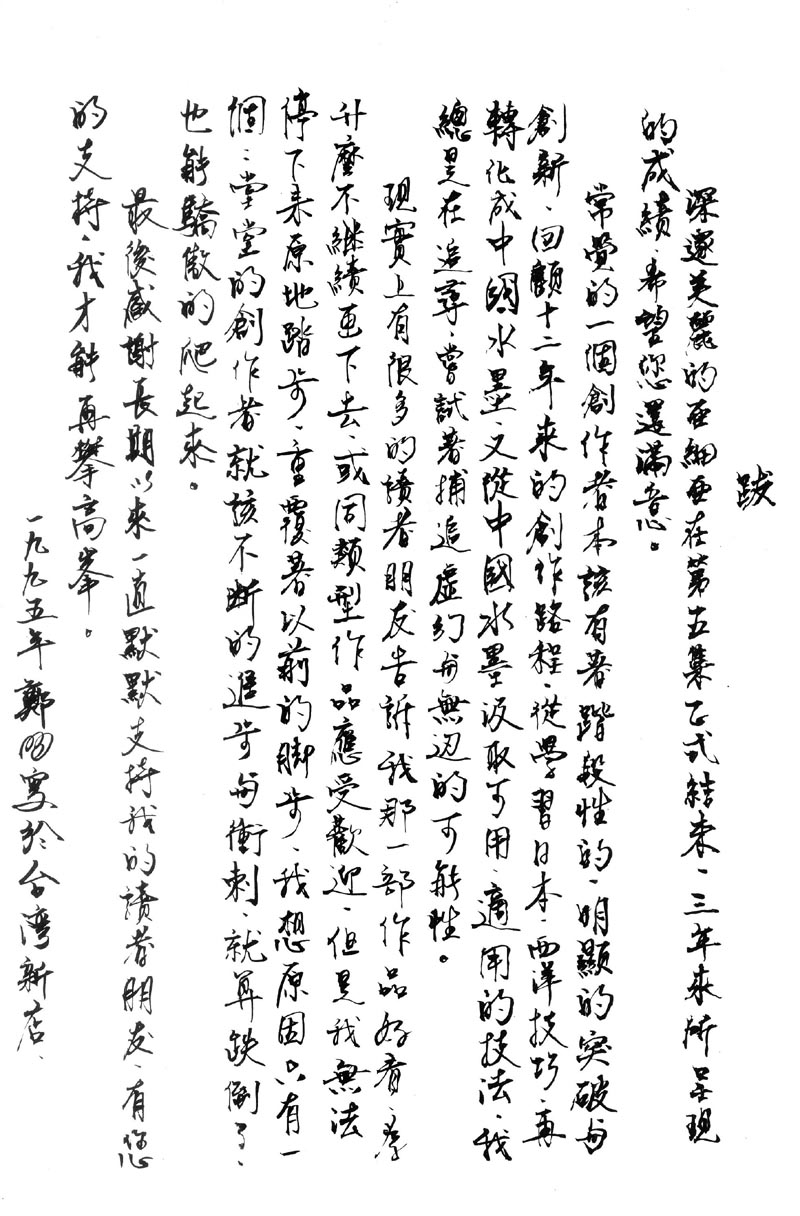 跋
深邃美麗的亞細亞在第五集正式結束、三年來所呈現
的成績、希望您還滿意。
常覺的一個創作者本該有著階段性的、明顯的突破與
創新、回顧十二年來的創作路程、從學習日本、西洋技巧、再
轉化成中國水墨、又從中國水墨汲取可用、適用的技法、我
總是在追尋、嘗試著捕追虛幻與無边的可能性。
現實上有很多的讀者朋友告訴我那一部作品好看、為
什麼不継續画下去、或同類型作品應受歡迎、但是我無法
停下来原地踏步、重覆著以前的脚步、我想原因只有一
個：堂堂的創作者就該不断的進步与衝刺、就算跌倒了、
也能驕傲的爬起來。
最後感謝長期以來一直默默支持我的讀者朋友、有您
的支持、我才能再攀高峯。
一九九五年鄭問寫於台灣新店、